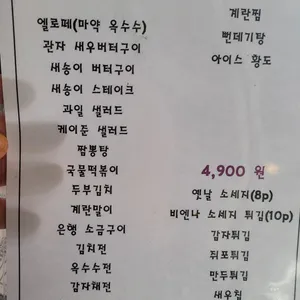 엘로페(마약 옥수수)
관자 새우버터구이
새송이 버터구이
새송이 스테이크
과일 샐러드
케이준 샐러드
짬뽕탕
국물떡볶이
두부김치
계란말이
은행 소금구이
김치전
옥수수전
감자채전
계란찜
뻔데기탕
아이스 황도
4,900 원
옛날 소세지(8p)
비엔나 소세지 튀김(10p)
감자튀김
쥐포튀김
만두튀김
새우칩